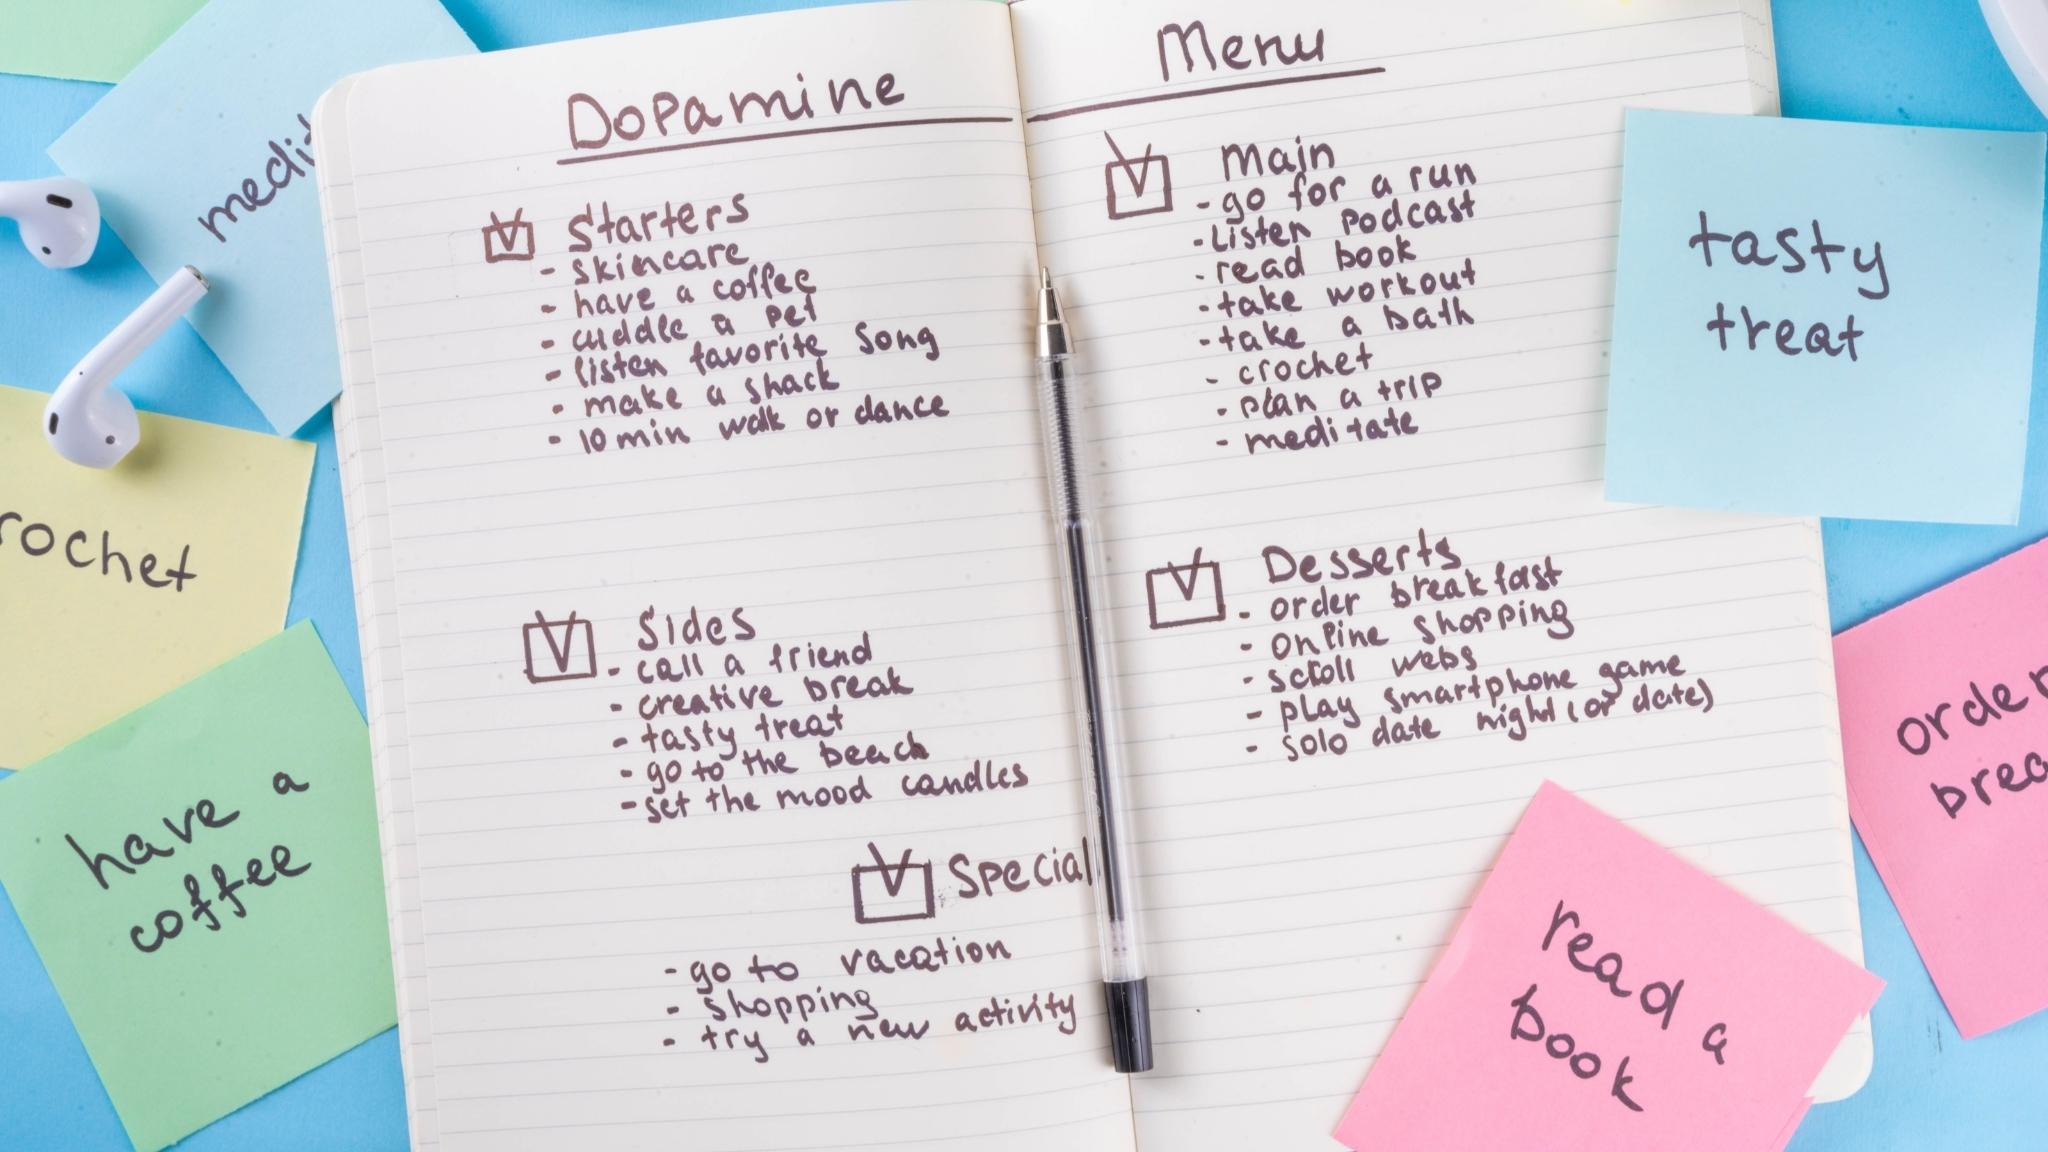 Dopamine Menu
Starters
- skincare
- have a coffee
- cuddle a pet
- listen favorite song
- make a shack
- 10 min walk or dance
Sides
- call a friend
- creative break
- tasty treat
- go to the beach
- set the mood candles
Special
- go to vacation
- shopping
- try a new activity
Main
- go for a run
- listen podcast
- read book
- take workout
- take a bath
- crochet
- plan a trip
- meditate
Desserts
- order breakfast
- online shopping
- scroll webs
- play smartphone game
- solo date night (or date)
medit
rochet
have a
coffee
tasty
treat
order
brea
read a
book